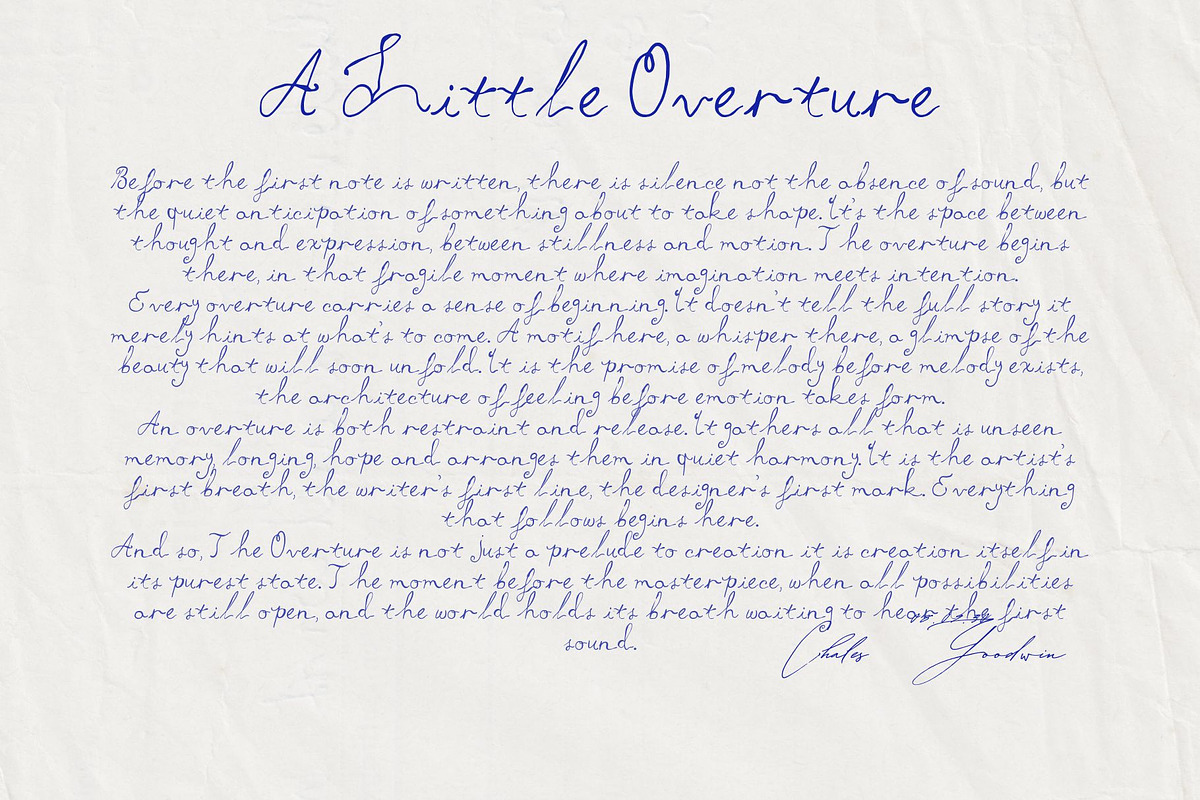 A Little Overture
Before the first note is written, there is silence not the absence of sound, but
the quiet anticipation of something about to take shape. It's the space between
thought and expression, between stillness and motion. The overture begins
there, in that fragile moment where imagination meets intention.
Every overture carries a sense of beginning. It doesn't tell the full story it
merely hints at what's to come. A motif here, a whisper there, a glimpse of the
beauty that will soon unfold. It is the promise of melody before melody exists,
the architecture of feeling before emotion takes form.
An overture is both restraint and release. It gathers all that is unseen
memory, longing, hope and arranges them in quiet harmony. It is the artist's
first breath, the writer's first line, the designer's first mark. Everything
that follows begins here.
And so, The Overture is not just a prelude to creation it is creation itself in
its purest state. The moment before the masterpiece, when all possibilities
are still open, and the world holds its breath waiting to hear the first
sound.
Chales Goodwin